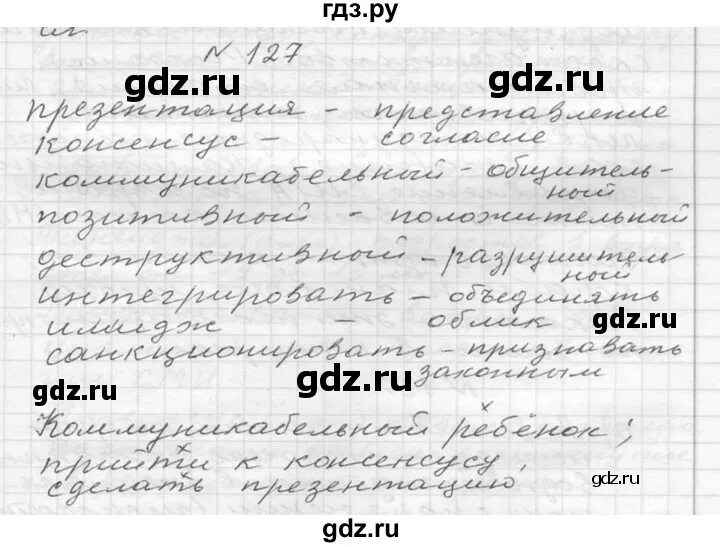 гдз.ру
№ 127
gdz.ru gdz.ru
презентация – представление
консенсус – согласие
коммуникабельный – общитель-
ный
позитивный – положительный
деструктивный – разрушитель
ный
интегрировать – объединять
имидж – облик
gdz.ru
санкционировать – признавать
законным
gdz.ru gdz.ru
Коммуникабельный ребёнок;
прийти к консенсусу,
сделать презентацию
gdz.ru gdz.ru
gdz.ru